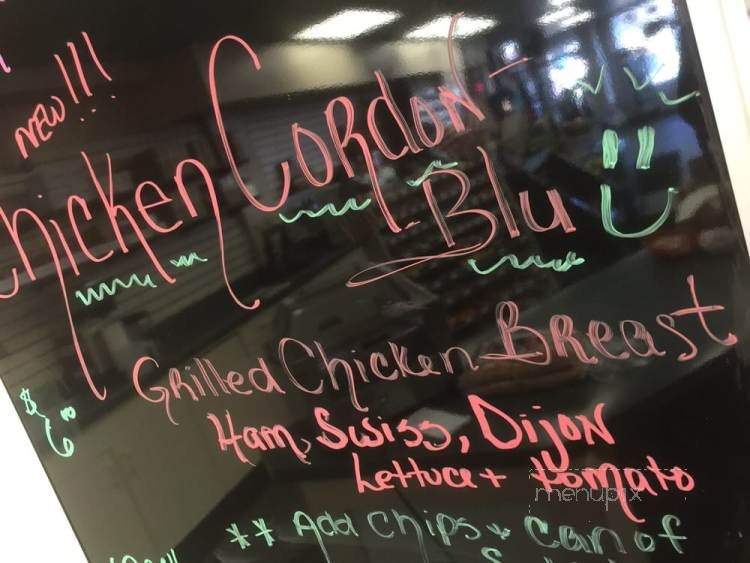 NEW!!!
Chicken Cordon
Blu
Grilled Chicken Breast
Ham, Swiss, Dijon
Lettuce + tomato
menupix
** Add Chips + Can of